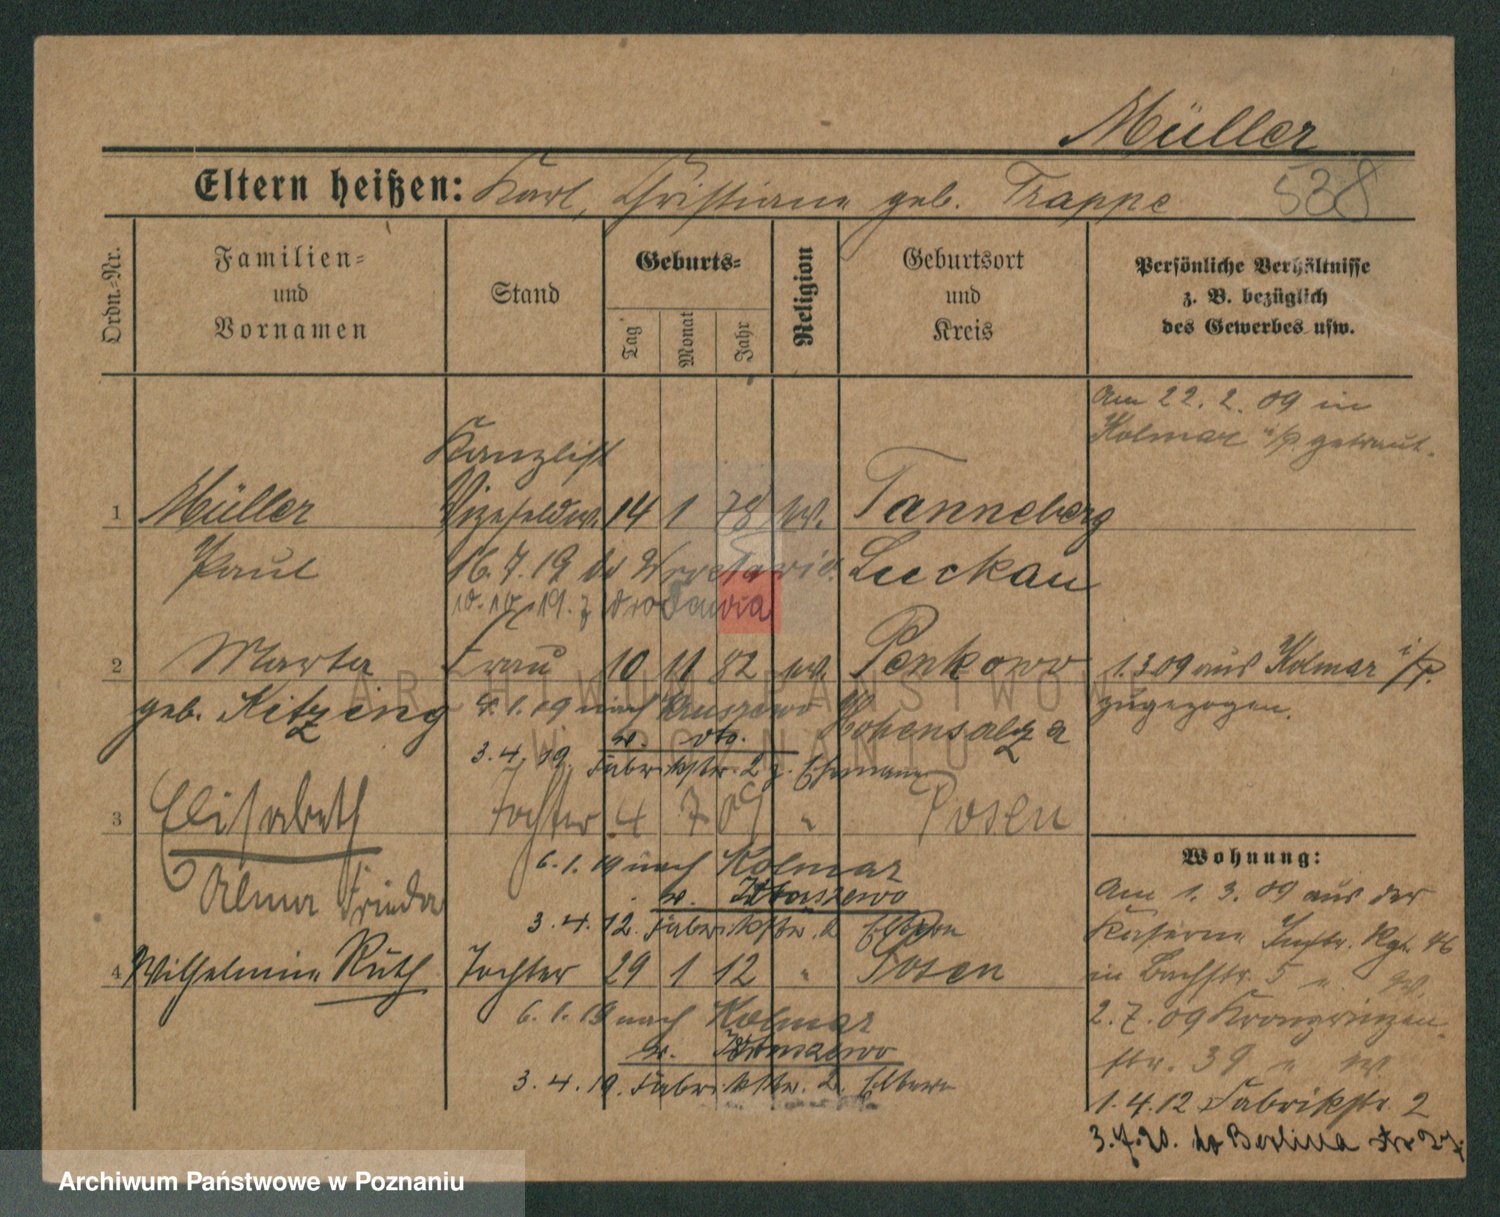 Müller
Eltern heißen: Karl, Christiane geb. Trappe
538
Ordn.-Nr.
Familien-
und
Vornamen
Stand
Geburts-
Tag
Monat
Jahr
Religion
Geburtsort
und
Kreis
Persönliche Verhältnisse
z. B. bezüglich
des Gewerbes usw.
Am 22. 2. 09 in
Kolmar i/p getraut.
Kanzlist
1 Müller Vizefeldw. 14 1 78 Tanneberg
Paul 16. 7. 19 do Luckau
2 Marta Frau 10 11 82 Penkowo 1.3.09 aus Kolmar i/p.
geb. Kitzing 6.1.19 nach Hohensalza zugezogen.
3.4.19 Fabrikstr. 2 z. Ehemann
3 Elisabeth Tochter 4 7 09 " Posen
Alma Frieda
6.1.19 nach Kolmar
3.4.12. Fabrikstr. 2 Eltern
4 Wilhelmine Ruth Tochter 29 1 12 " Posen
6.1.19 nach Kolmar
3.4.19. Fabrikstr. 2. Eltern
Wohnung:
Am 1. 3. 09 aus der
Kaserne Inftr. Rgt. 46
in Bachstr. 5
2.7.09 Kronprinzen
str. 39
1.4.12 Fabrikstr. 2
3.7.20. do Berlina
ARCHIWUM PAŃSTWOWE
W POZNANIU
Archiwum Państwowe w Poznaniu